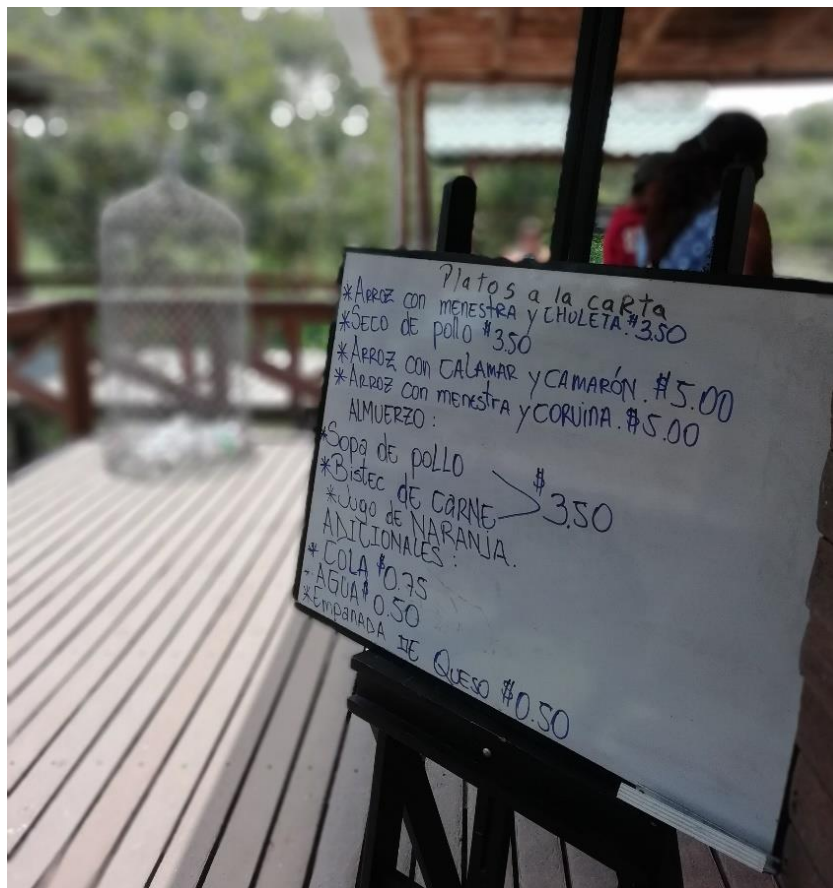 Platos a la caRta
*ARROZ con menestRA y CHULETA. $3.50
*SECO de pollo $3.50
*ARROZ con CALAMAR y CAMARÓN. $5.00
*ARROZ con menestRA y CORVINA. $5.00
ALMUERZO:
*Sopa de poLLO
*Bistec dE CaRNE $3.50
*Jugo de NARANJA.
ADICIONALES:
* COLA $0.75
- AGUA $0.50
*EmpaNADA DE QUESO $0.50